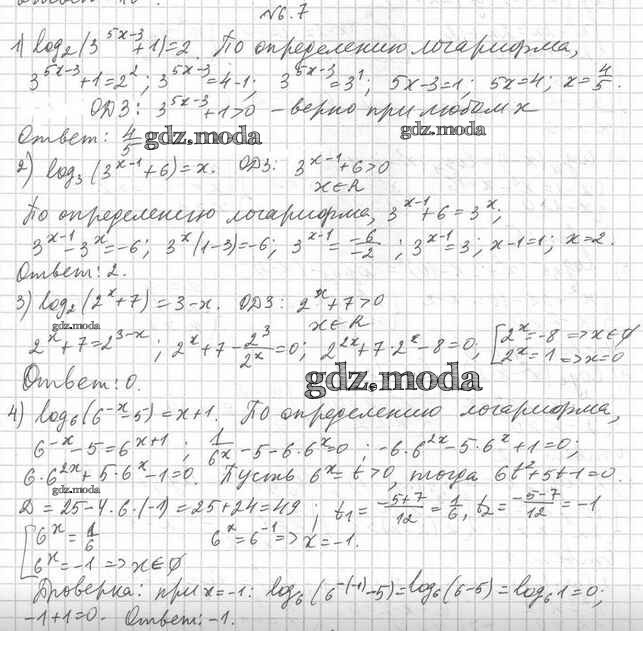 №6.7
1) log₂(3^(5x-3)+1)=2. По определению логарифма,
3^(5x-3)+1=2²; 3^(5x-3)=4-1; 3^(5x-3)=3¹; 5x-3=1; 5x=4; x=4/5.
ОДЗ: 3^(5x-3)+1>0 – верно при любом x
Ответ: 4/5
gdz.moda
gdz.moda
2) log₃(3^(x-1)+6)=x. ОДЗ: 3^(x-1)+6>0
x∈R
По определению логарифма, 3^(x-1)+6=3^x;
3^(x-1)-3^x=-6; 3^x(1-3)=-6; 3^(x-1)=-6/-2; 3^(x-1)=3; x-1=1; x=2.
Ответ: 2.
3) log₂(2^x+7)=3-x. ОДЗ: 2^x+7>0
gdz.moda
x∈R
2^x+7=2^(3-x); 2^x+7-2³/2^x=0; 2^(2x)+7·2^x-8=0; [2^x=-8=>x∈∅
2^x=1=>x=0
Ответ: 0.
gdz.moda
4) log₆(6^(-x)-5)=x+1. По определению логарифма,
6^(-x)-5=6^(x+1); 1/6^x-5-6·6^x=0; -6·6^(2x)-5·6^x+1=0;
6·6^(2x)+5·6^x-1=0. Пусть 6^x=t>0, тогда 6t²+5t-1=0.
gdz.moda
D=25-4·6·(-1)=25+24=49; t₁=(-5+7)/12=1/6, t₂=(-5-7)/12=-1
[6^x=1/6 6^x=6^(-1)=>x=-1.
6^x=-1=>x∈∅
Проверка: при x=-1: log₆(6^(-(-1))-5)=log₆(6-5)=log₆1=0;
-1+1=0. Ответ: -1.